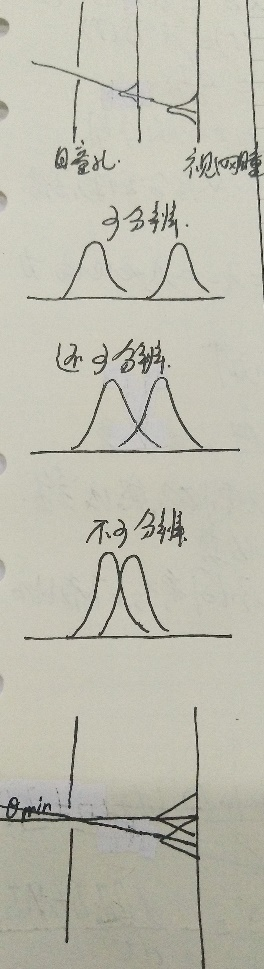 目瞳孔.
视网膜
可分辨.
还可分辨.
不可分辨.
θmin